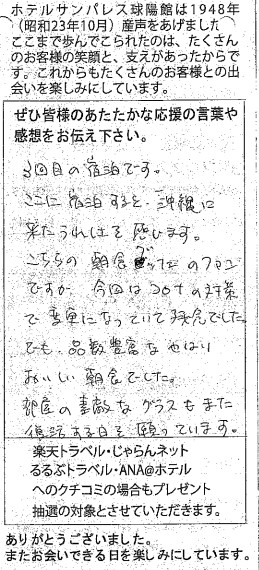 ホテルサンパレス球陽館は1948年
(昭和23年10月)産声をあげました
ここまで歩んでこられたのは、たくさん
のお客様の笑顔と、支えがあったからで
す。これからもたくさんのお客様との出
会いを楽しみにしています。
ぜひ皆様のあたたかな応援の言葉や
感想をお伝え下さい。
3回目の宿泊です。
ここに宿泊すると、沖縄に
来たうれしさを感じます。
こちらの朝食ブッフェのファン
ですが、今回はコロナの対策
で変更になっていて残念でした。
でも、品数豊富なやはり
おいしい朝食でした。
部屋の素敵なグラスもまた
復活する日を願っています。
楽天トラベル・じゃらんネット
るるぶトラベル・ANA@ホテル
へのクチコミの場合もプレゼント
抽選の対象とさせていただきます。
ありがとうございました。
またお会いできる日を楽しみにしています。